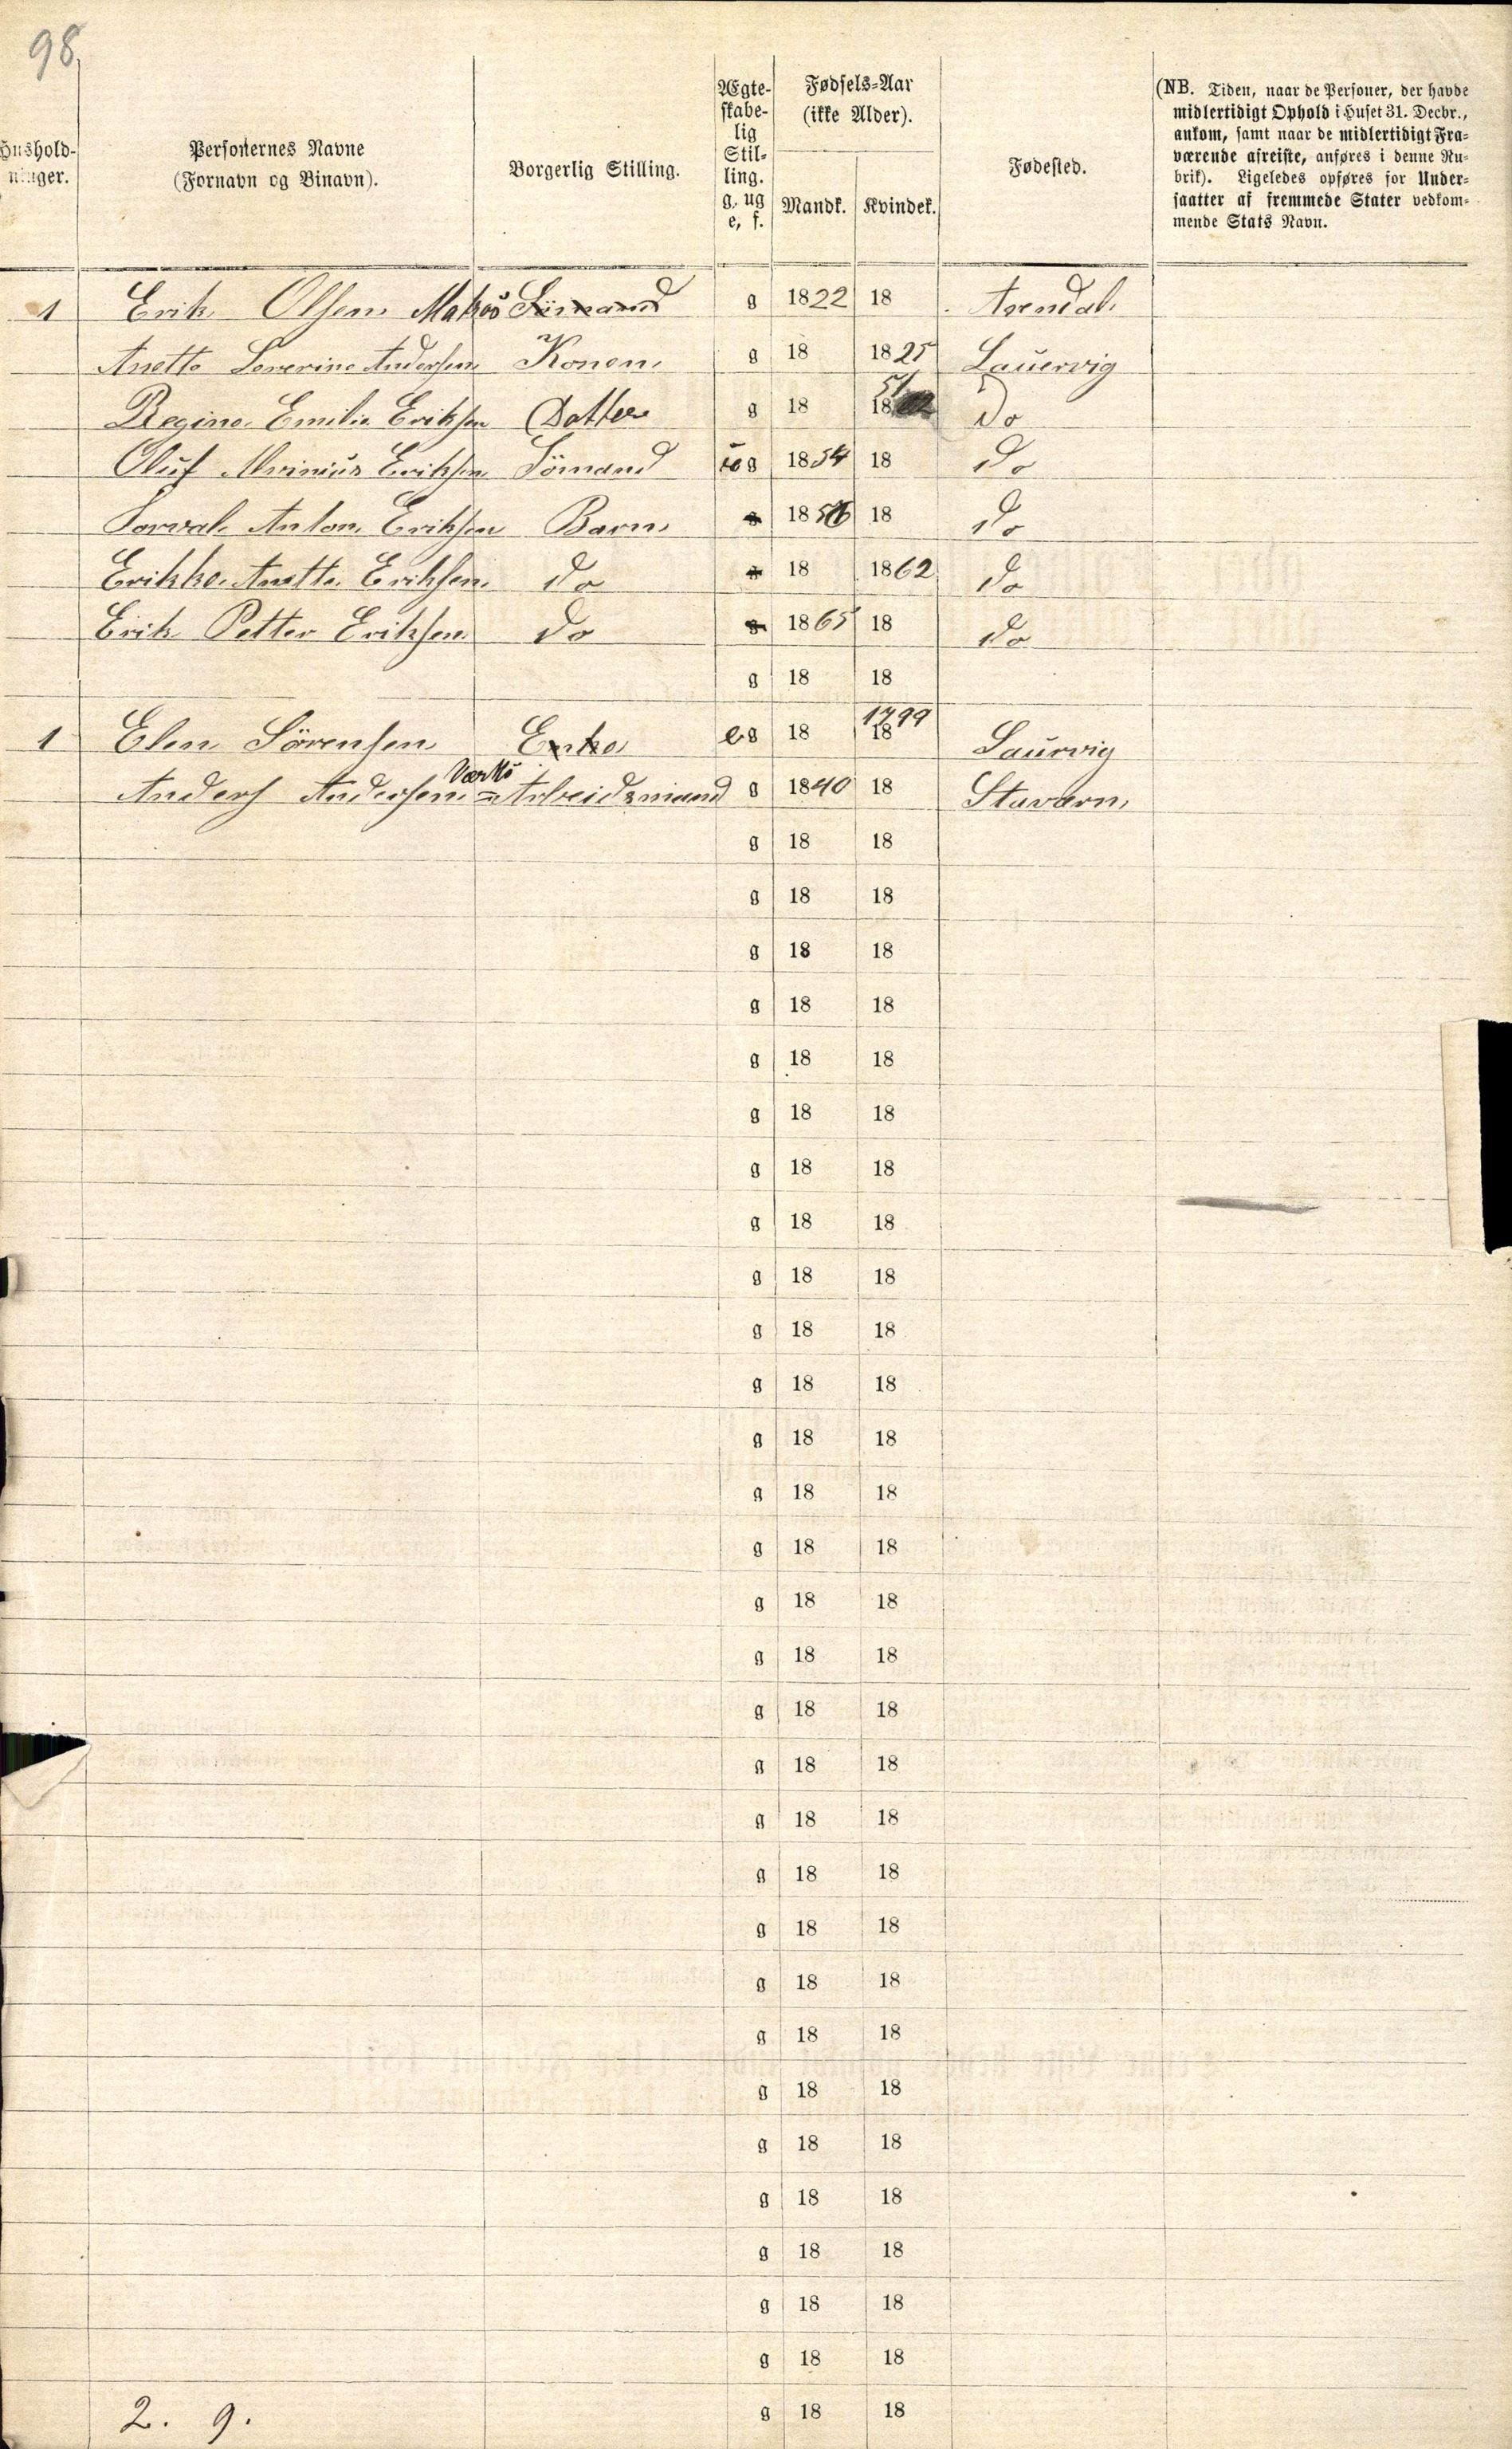 98
Hushold-
ninger.
Personernes Navne
(Fornavn og Binavn).
Borgerlig Stilling.
Ægte-
skabe-
lig
Stil-
ling.
g, ug
e, f.
Fødsels-Aar
(ikke Alder).
Mandk.
Kvindek.
Fødested.
(NB. Tiden, naar de Personer, der havde
midlertidigt Ophold i Huset 31. Decbr.,
ankom, samt naar de midlertidigt Fra-
værende afreiste, anføres i denne Ru-
brik). Ligeledes opføres for Under-
saatter af fremmede Stater vedkom-
mende Stats Navn.
1 Erik Olsen Sömand g 1822 18 Arendal
Anette Severine Andersen Konen g 18 1825 Lauervig
Regine Emilie Eriksen Datter g 18 1851 Do
Oluf Eriksen Sömand ug 1854 18 Do
Torval Anton Eriksen Barn g 18 18 Do
Erikke Anette Eriksen Do g 18 1862 Do
Erik Petter Eriksen Do g 1865 18 Do
g 18 18
1 Elen Sörensen Enke eg 18 18 1799 Laurvig
Anders Andersen Værks Arbeidsmand g 1840 18 Staværn
g 18 18
g 18 18
g 18 18
g 18 18
g 18 18
g 18 18
g 18 18
g 18 18
g 18 18
g 18 18
g 18 18
g 18 18
g 18 18
g 18 18
g 18 18
g 18 18
g 18 18
g 18 18
g 18 18
g 18 18
g 18 18
g 18 18
g 18 18
g 18 18
g 18 18
g 18 18
g 18 18
g 18 18
g 18 18
2. 9. g 18 18